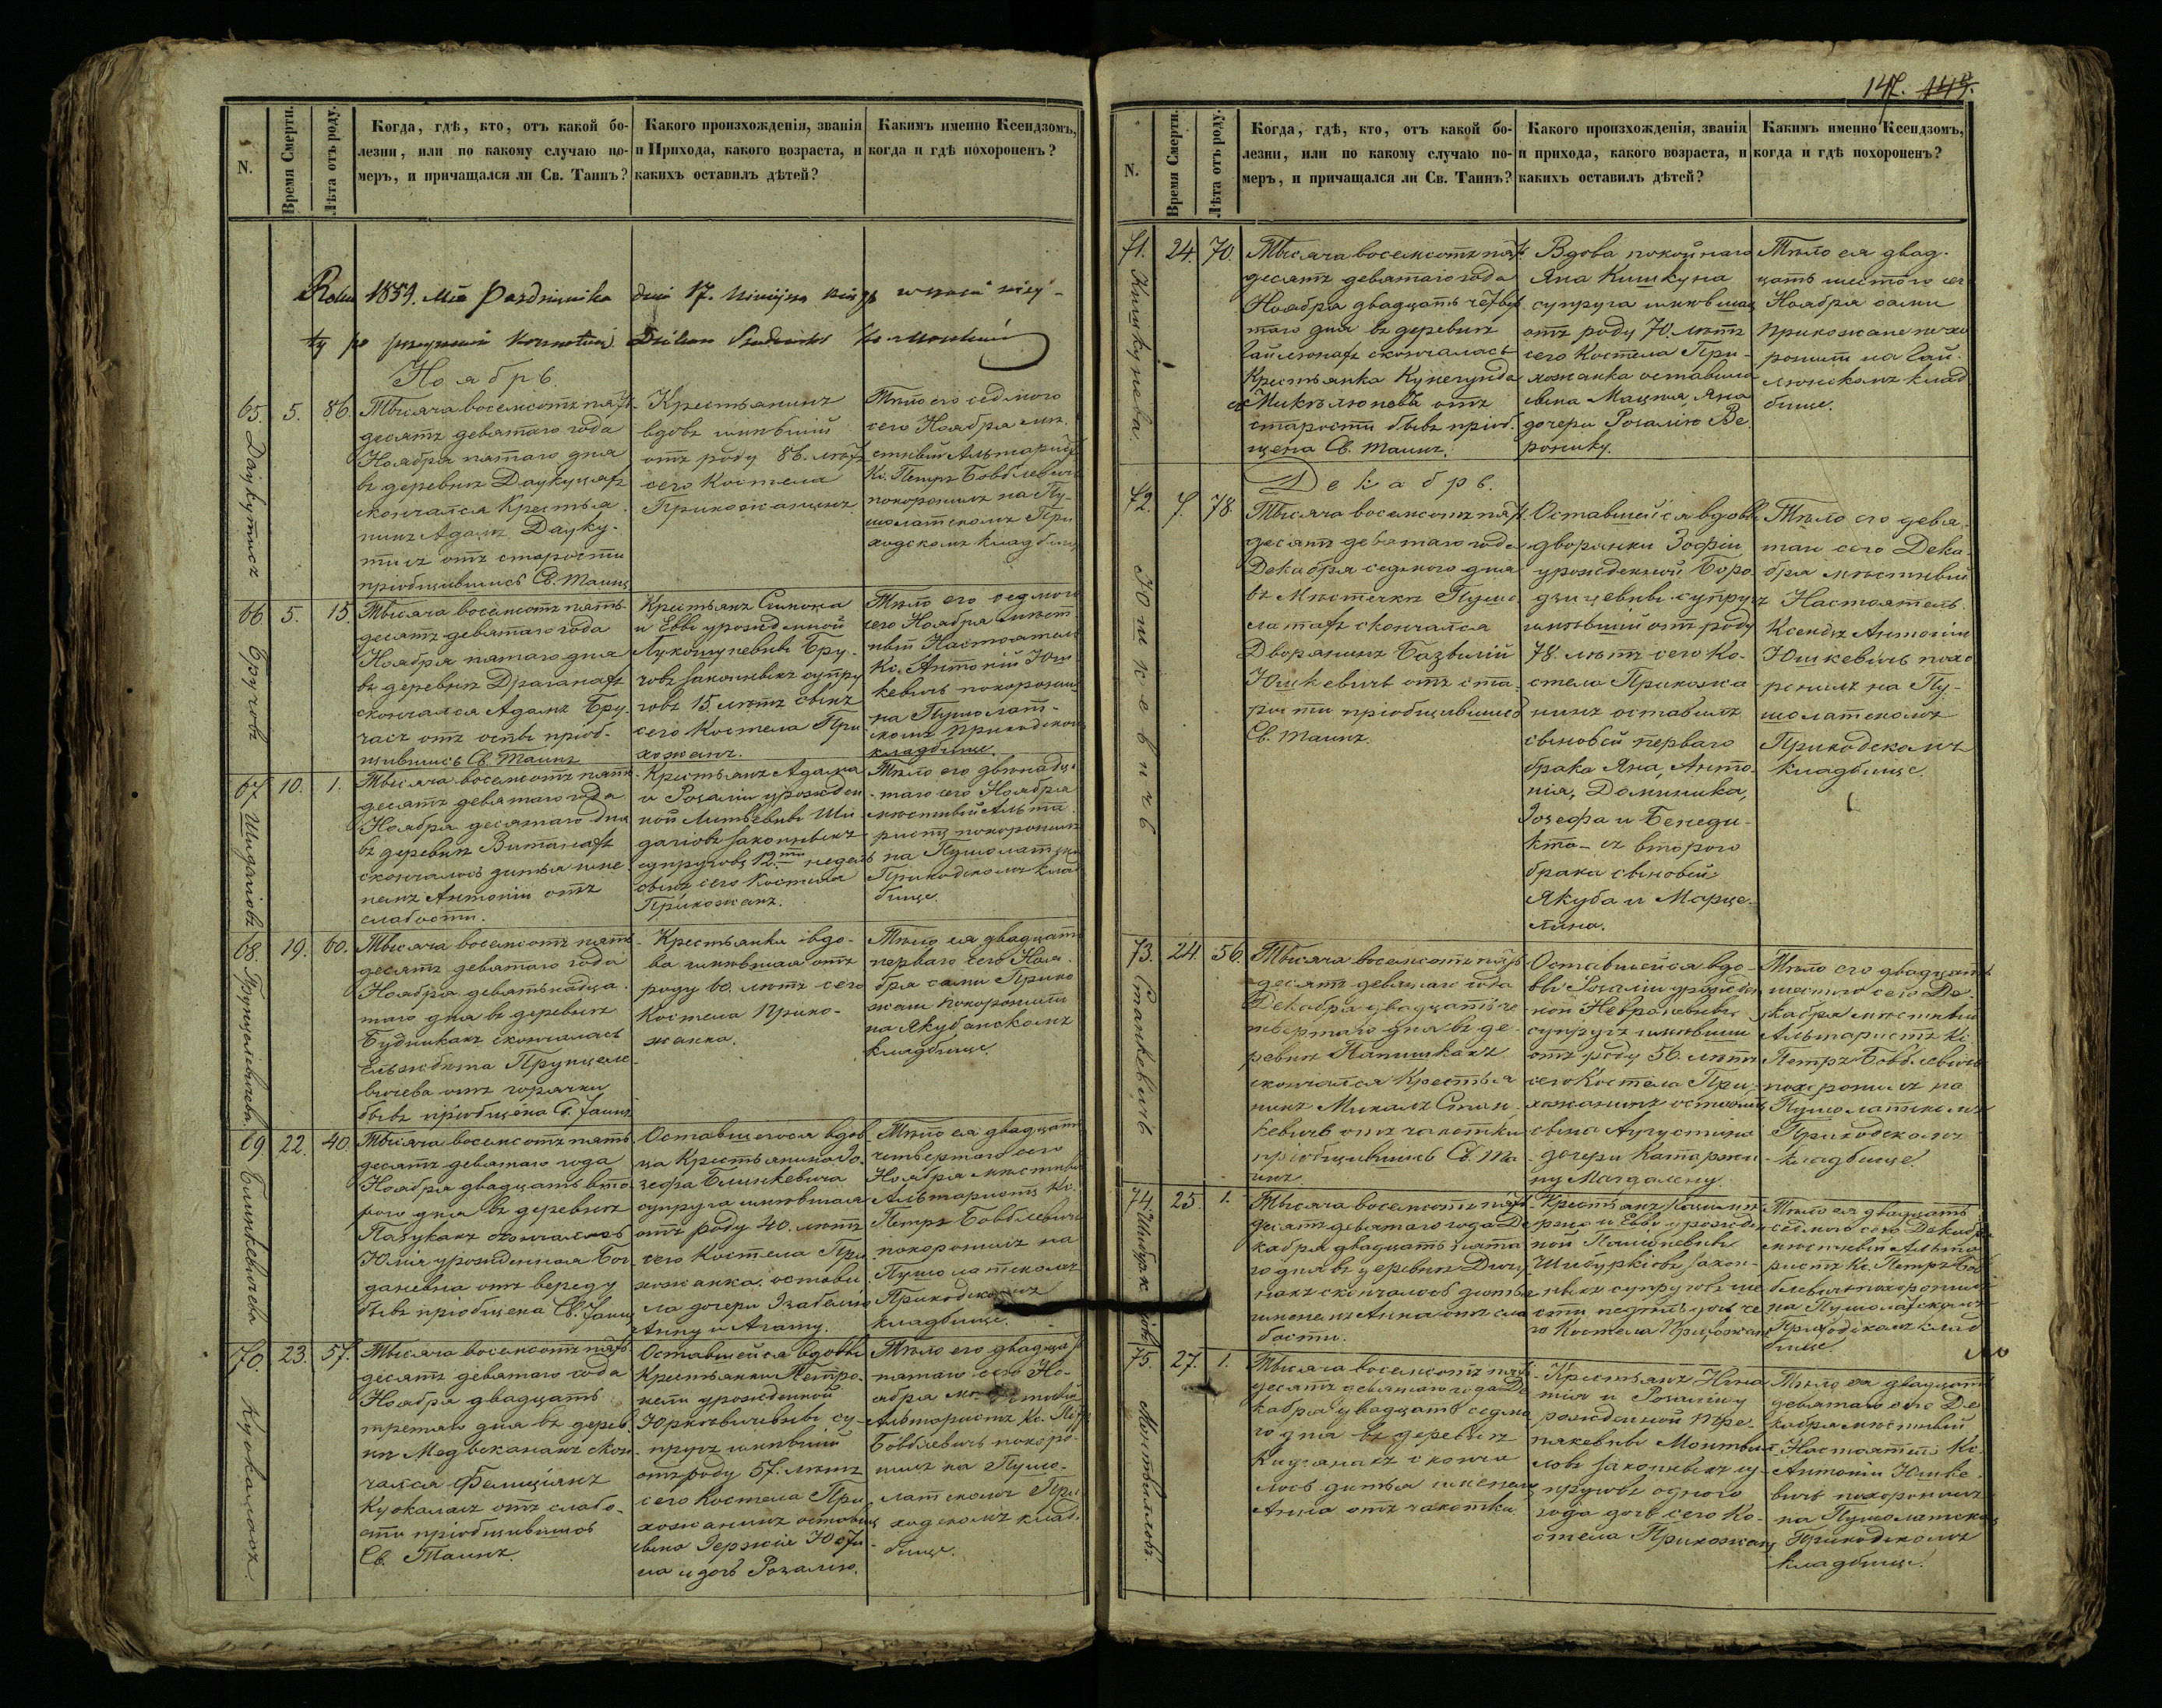 N.
Время Смерти.
Лѣта отъ роду.
Когда, гдѣ, кто, отъ какой бо-
лезни, или по какому случаю по-
меръ, и причащался ли Св. Таинъ?
Какого произхожденія, званія
и Прихода, какого возраста, и
какихъ оставилъ дѣтей?
Какимъ именно Ксендзомъ,
когда и гдѣ похороненъ?
Roku 1859. Mca Pazdziernika dnia 17.
Ноябрь.
65.
5.
86.
Тысяча восемсотъ пять
десятъ девятаго года
Ноября пятаго дня
въ деревнѣ
скончался Крестья
нинъ Адамъ Дауку
тисъ отъ старости
пріобщившись Св. Таинъ
Крестьянинъ
вдовъ имѣвшій
отъ роду 86. лѣтъ
сего Костела
Прихожанинъ
Тѣло его седмого
сего Ноября мѣ
стный Альтариста
Кс. Петръ Бовблевичъ
похоронилъ на Пу-
шолатскомъ При
ходскомъ кладбищѣ
66.
5.
15.
Бручовъ
Тысяча восемсотъ пять
десятъ девятаго года
Ноября пятаго дня
въ деревнѣ Драганахъ
скончался Адамъ Бру
часъ отъ оспы пріоб-
щившись Св. Таинъ
Крестьянъ Симона
и Еввы урожденной
Лукошуневны Бру-
човъ законныхъ супру
говъ 15 лѣтъ сынъ
сего Костела При
хожанъ.
Тѣло его седмого
сего Ноября мѣст
ный Настоятель
Кс. Антоній Юш
кевичъ похоронилъ
на Пушолат-
скомъ Приходскомъ
кладбище.
67.
10.
1.
Шидлагіовъ
Тысяча восемсотъ пять
десятъ девятаго года
Ноября десятаго дня
въ деревнѣ Витанахъ
скончалось дитя име-
немъ Антоній отъ
слабости.
Крестьянъ Адама
и Розаліи урожден
ной
законныхъ
супруговъ 12.ти недель
сынъ сего Костела
Прихожанъ.
Тѣло его двѣнадца
таго сего Ноября
мѣстный Альта
ристъ похоронилъ
на Пушолатскомъ
Приходскомъ клад
бище.
68.
19.
60.
Тысяча восемсотъ пять
десятъ девятаго года
Ноября девятьнадца
таго дня въ деревнѣ
Будникахъ скончалась
Ельжбета Прунцеле
вичева отъ горячки
бывъ пріобщена Св. Таинъ
Крестьянка вдо-
ва имѣвшая отъ
роду 60. лѣтъ сего
Костела Прихо-
жанка.
Тѣло ея двадцать
перваго сего Ноя
бря сами Прихо
жане похоронили
на Якубанскомъ
кладбище.
69.
22.
40.
Блинкевичева
Тысяча восемсотъ пять
десятъ девятаго года
Ноября двадцать вто
рого дня въ деревнѣ
Пазукахъ скончалась
Юлія урожденная Бог
даневна отъ вереду
бывъ пріобщена Св. Таинъ
Оставшегося вдов
ца Крестьянина Іо
зефа Блинкевича
супруга имѣвшая
отъ роду 40. лѣтъ
сего Костела При
хожанка, остави
ла дочери Изабелію
Анну и Агату.
Тѣло ея двадцать
четвертаго сего
Ноября мѣстный
Альтаристъ Кс.
Петръ Бовблевичъ
похоронилъ на
Пушолатскомъ
Приходскомъ
кладбище.
70.
23.
57.
Куокалоск.
Тысяча восемсотъ пять
десятъ девятаго года
Ноября двадцать
третьяго дня въ дерев
нѣ скон
чался Фелиціанъ
Куокаласъ отъ слабо-
сти пріобщившись
Св. Таинъ.
Оставшейся вдовы
Крестьянки Петро-
нели урожденной
Юркевичевны су-
пругъ имѣвшій
отъ роду 57. лѣтъ
сего Костела При
хожанинъ оставилъ
сына Юсти
на и дочь Розалію.
Тѣло его двадцать
пятаго сего Но-
ября мѣстный
Альтаристъ Кс. Петръ
Бовблевичъ похоро-
нилъ на Пушо-
латскомъ При
ходскомъ клад-
бище.
147.
N.
Время Смерти.
Лѣта отъ роду.
Когда, гдѣ, кто, отъ какой бо-
лезни, или по какому случаю по-
меръ, и причащался ли Св. Таинъ?
Какого произхожденія, званія
и прихода, какого возраста, и
какихъ оставилъ дѣтей?
Какимъ именно Ксендзомъ,
когда и гдѣ похороненъ?
71.
24.
70.
Кишкунева.
Тысяча восемсотъ пять
десятъ девятаго года
Ноября двадцать четвер
таго дня въ деревнѣ
Гайлюнахъ скончалась
Крестьянка Кунегунда
отъ
старости бывъ пріоб-
щена Св. Таинъ.
Вдова покойнаго
Яна Кишкуна
супруга имѣвшая
отъ роду 70. лѣтъ
сего Костела При-
хожанка оставила
сына Мацѣя, Яна
дочери Розалію Ве
ронику.
Тѣло ея двад-
цать шестого сего
Ноября сами
Прихожане похо
ронили на Гай-
люнскомъ клад
бище.
Декабрь.
72.
7.
78.
Юшкевичъ
Тысяча восемсотъ пять
десятъ девятаго года
Декабря седмого дня
въ Мѣстечкѣ Пушо
латахъ скончался
Дворянинъ Базылій
Юшкевичъ отъ ста
рости пріобщившись
Св. Таинъ.
Оставшейся вдовы
дворянки Зофіи
урожденной Боро
дзицевны супругъ
имѣвшій отъ роду
78. лѣтъ сего Ко-
стела Прихожа
нинъ оставилъ
сыновей перваго
брака Яна, Анто-
нія, Доминика,
Іозефа и Бенеди-
кта - съ второго
брака сыновей
Якуба и Марце-
лина.
Тѣло его девя
таго сего Дека-
бря мѣстный
Настоятель
Ксендзъ Антоній
Юшкевичъ похо
ронилъ на Пу-
шолатскомъ
Приходскомъ
кладбище.
73.
24.
56.
Станкевичъ
Тысяча восемсотъ пять
десятъ девятаго года
Декабря двадцать че
твертаго дня въ де-
ревнѣ Папишкахъ
скончался Крестья
нинъ Михалъ Стан-
кевичъ отъ чахотки
пріобщившись Св. Та
инъ.
Оставшейся вдо-
вы Розаліи урожден
ной
супругъ имѣвшій
отъ роду 56. лѣтъ
сего Костела При-
хожанинъ оставилъ
сына Августина
дочери Катаржи
ну Магдалену.
Тѣло его двадцать
шестого сего Де
кабря мѣстный
Альтаристъ Кс.
Петръ Бовблевичъ
похоронилъ на
Пушолатскомъ
Приходскомъ
кладбище.
74.
25.
1.
Тысяча восемсотъ пять
десятъ девятаго года Де
кабря двадцать пята
го дня въ деревнѣ
скончалось дитя
именемъ Анна отъ сла
бости.
Крестьянъ Казими
ра и Еввы урожден
ной
закон-
ныхъ супруговъ ше
сти недѣль дочь се
го Костела Прихожанъ
Тѣло ея двадцать
седмого сего Декабря
мѣстный Альта
ристъ Кс. Петръ Бов
блевичъ похоронилъ
на Пушолатскомъ
Приходскомъ клад
бище
75.
27.
1.
Монтвилловъ.
Тысяча восемсотъ пять
десятъ девятаго года Де
кабря двадцать седмо
го дня въ деревнѣ
сконча
лось дитя именемъ
Анна отъ чахотки.
Крестьянъ Игна
тія и Розаліи у
рожденной
Монтвил
ловъ законныхъ су-
пруговъ одного
года дочь сего Ко-
стела Прихожанъ
Тѣло ея двадцать
девятаго сего Де
кабря мѣстный
Настоятель Кс.
Антоній Юшке
вичъ похоронилъ
на Пушолатскомъ
Приходскомъ
кладбище.